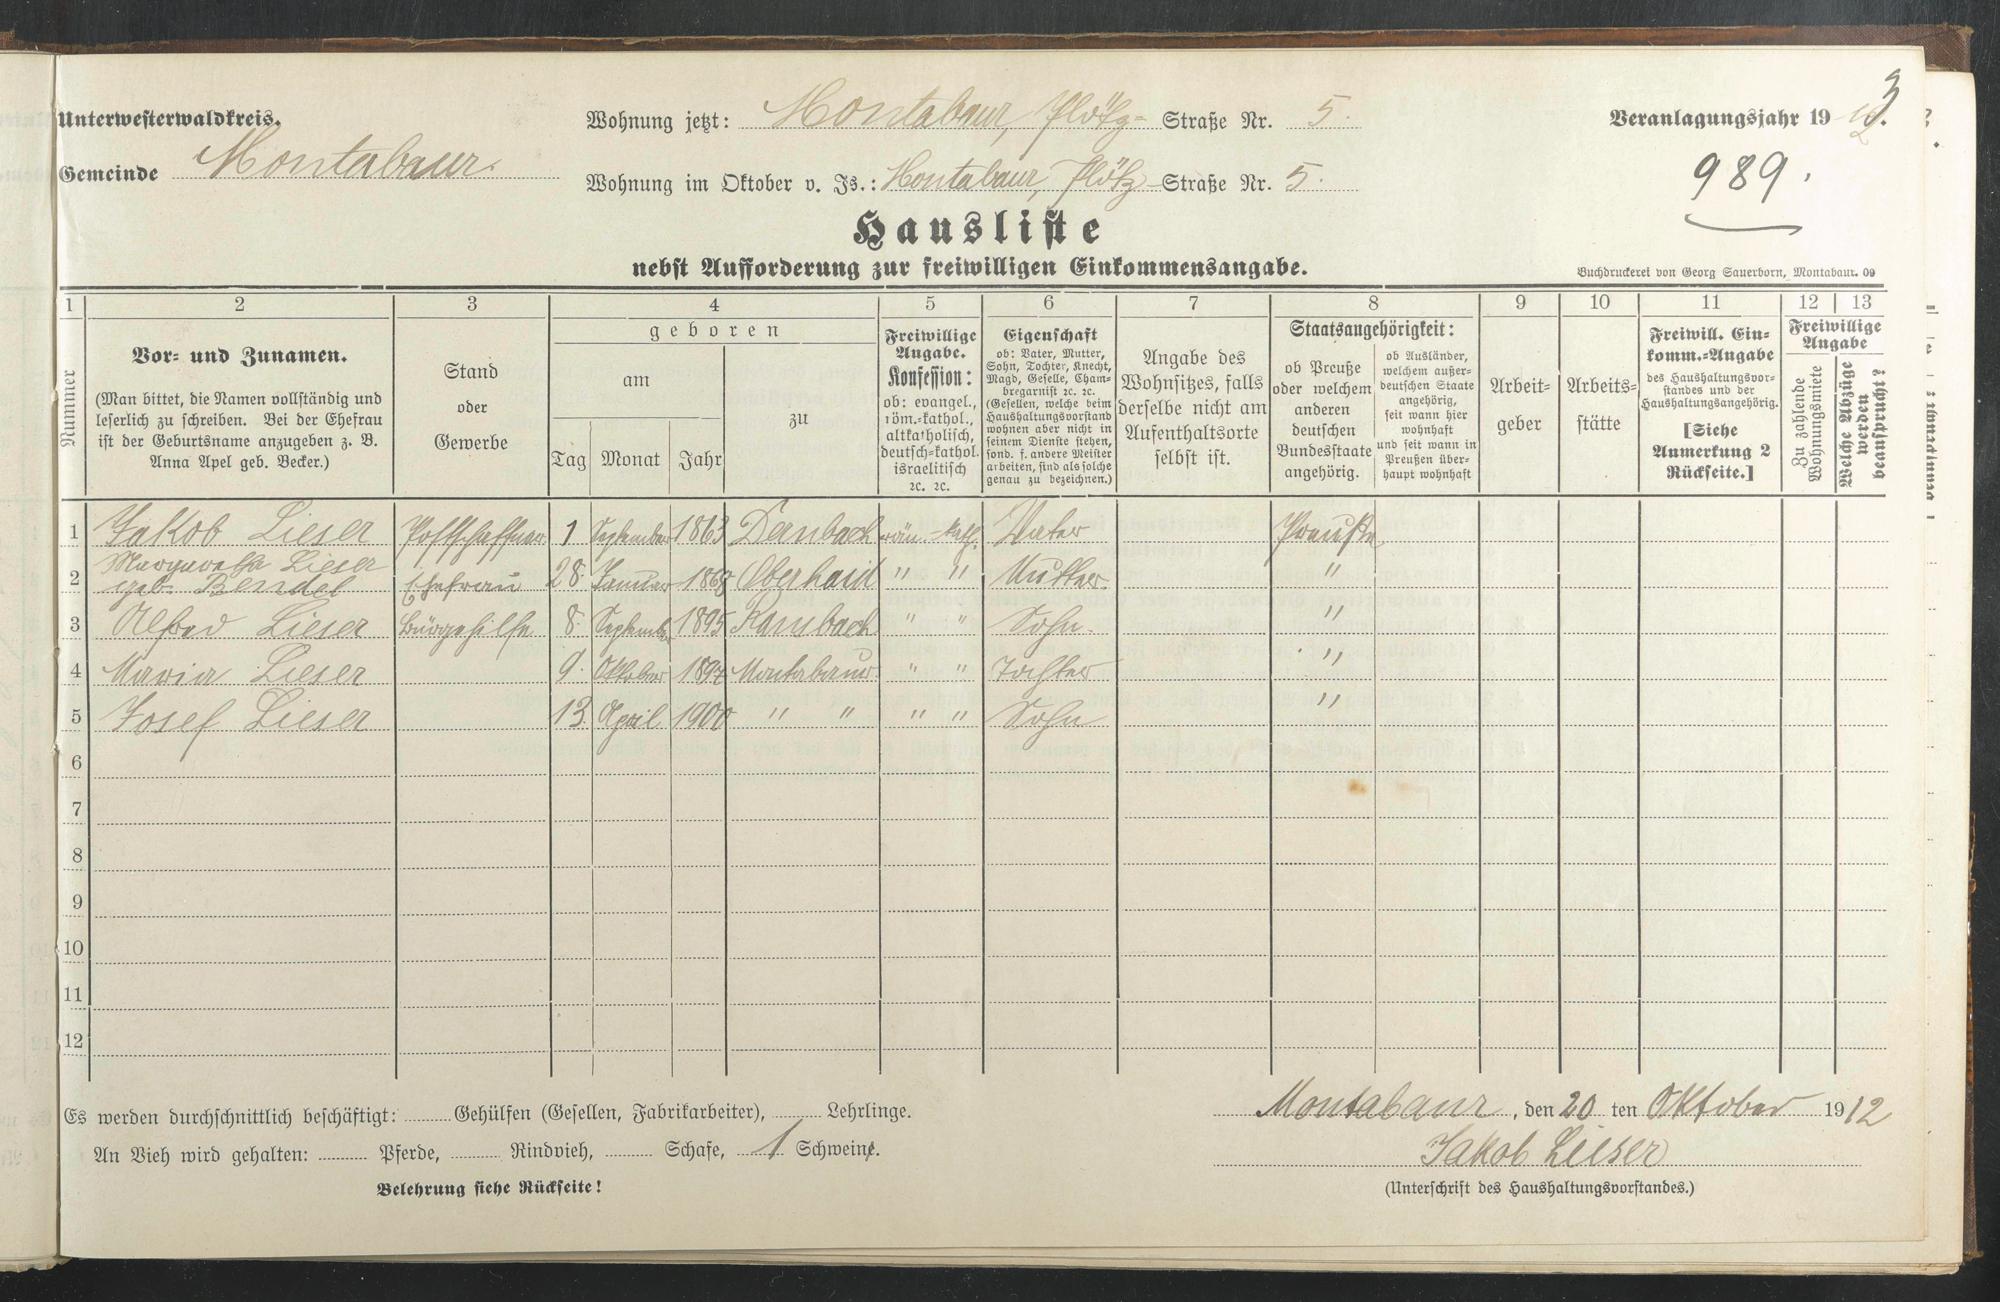 3
Unterwesterwaldkreis.
Wohnung jetzt: Montabaur, Plötz- Straße Nr. 5.
Veranlagungsjahr 19 13.
Gemeinde Montabaur.
Wohnung im Oktober v. Js.: Montabaur, Plötz- Straße Nr. 5.
989.
Hausliste
nebst Aufforderung zur freiwilligen Einkommensangabe.
Buchdruckerei von Georg Sauerborn, Montabaur. 09
1 2 3 4 5 6 7 8 9 10 11 12 13
Nummer
Vor- und Zunamen.
(Man bittet, die Namen vollständig und
leserlich zu schreiben. Bei der Ehefrau
ist der Geburtsname anzugeben z. B.
Anna Apel geb. Becker.)
Stand
oder
Gewerbe
geboren
am
Tag Monat Jahr
zu
Freiwillige
Angabe.
Konfession:
ob: evangel.,
röm.-kathol.,
altkatholisch,
deutsch-kathol.
israelitisch
2c. 2c.
Eigenschaft
ob: Vater, Mutter,
Sohn, Tochter, Knecht,
Magd, Geselle, Cham-
bregarnist 2c. 2c.
(Gesellen, welche beim
Haushaltungsvorstand
wohnen aber nicht in
seinem Dienste stehen,
sond. f. andere Meister
arbeiten, sind als solche
genau zu bezeichnen.)
Angabe des
Wohnsitzes, falls
derselbe nicht am
Aufenthaltsorte
selbst ist.
Staatsangehörigkeit:
ob Preuße
oder welchem
anderen
deutschen
Bundesstaate
angehörig.
ob Ausländer,
welchem außer-
deutschen Staate
angehörig,
seit wann hier
wohnhaft
und seit wann in
Preußen über-
haupt wohnhaft
Arbeit-
geber
Arbeits-
stätte
Freiwill. Ein-
komm.-Angabe
des Haushaltungsvor-
standes und der
Haushaltungsangehörig.
[Siehe
Anmerkung 2
Rückseite.]
Freiwillige
Angabe
Zu zahlende
Wohnungsmiete
Welche Abzüge
werden
beansprucht?
1 Jakob Lieser Postschaffner 1 September 1863 Dernbach röm. kath. Vater Preuße
2 Margaretha Lieser
geb. Bendel Ehefrau 28. Januar Oberhaid " " Mutter "
3 Alfred Lieser Bürogehilfe 8. September 1895 " " Sohn "
4 Maria Lieser 9. Oktober 1897 Montabaur " " Tochter "
5 Josef Lieser 13. April 1900 " " " " Sohn "
6
7
8
9
10
11
12
Es werden durchschnittlich beschäftigt: Gehülfen (Gesellen, Fabrikarbeiter), Lehrlinge.
Montabaur, den 20 ten Oktober 1912
An Vieh wird gehalten: Pferde, Rindvieh, Schafe, 1 Schweine.
Jakob Lieser
Belehrung siehe Rückseite!
(Unterschrift des Haushaltungsvorstandes.)